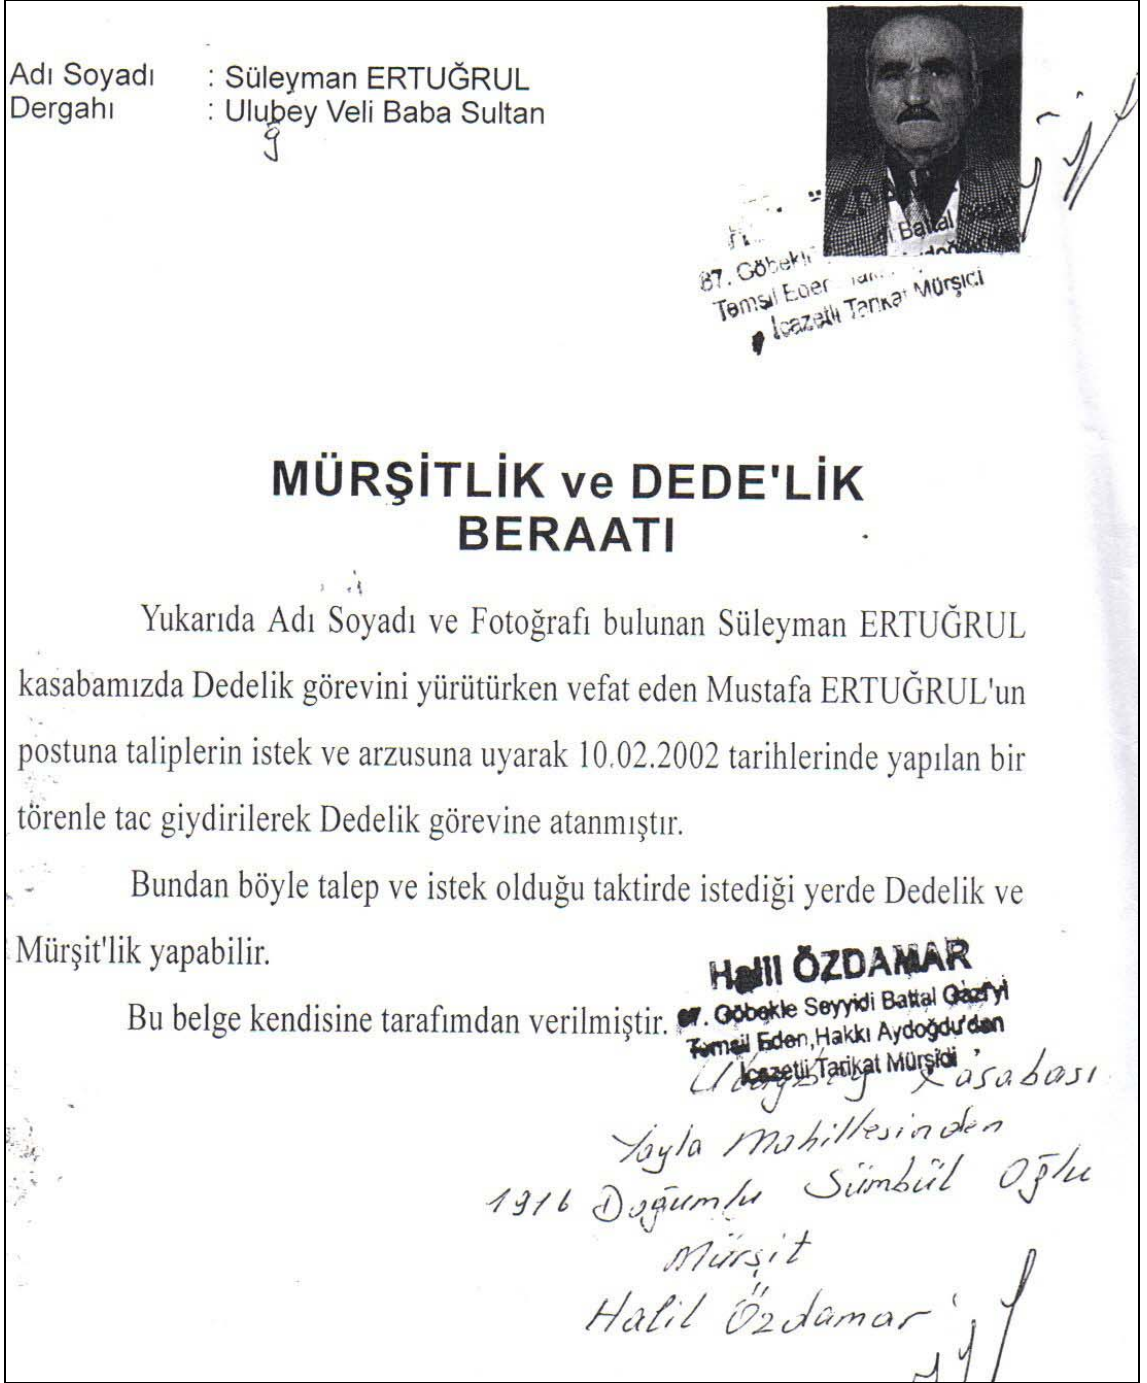 Adı Soyadı : Süleyman ERTUĞRUL
Dergahı : Ulubey Veli Baba Sultan
ğ
Battal
87. Göbekli
Temsil Eden
İcazetli Tarikat Mürşidi
MÜRŞİTLİK ve DEDE'LİK
BERAATI
Yukarıda Adı Soyadı ve Fotoğrafı bulunan Süleyman ERTUĞRUL
kasabamızda Dedelik görevini yürütürken vefat eden Mustafa ERTUĞRUL'un
postuna taliplerin istek ve arzusuna uyarak 10.02.2002 tarihlerinde yapılan bir
törenle tac giydirilerek Dedelik görevine atanmıştır.
Bundan böyle talep ve istek olduğu taktirde istediği yerde Dedelik ve
Mürşit'lik yapabilir.
Bu belge kendisine tarafımdan verilmiştir.
Halil ÖZDAMAR
87. Göbekle Seyyidi Battal Gazi'yi
Temsil Eden, Hakkı Aydoğdu'dan
İcazetli Tarikat Mürşidi
Uluğbey Kasabası
Yayla Mahillesinden
1916 Doğumlu Sümbül Oğlu
Mürşit
Halil Özdamar